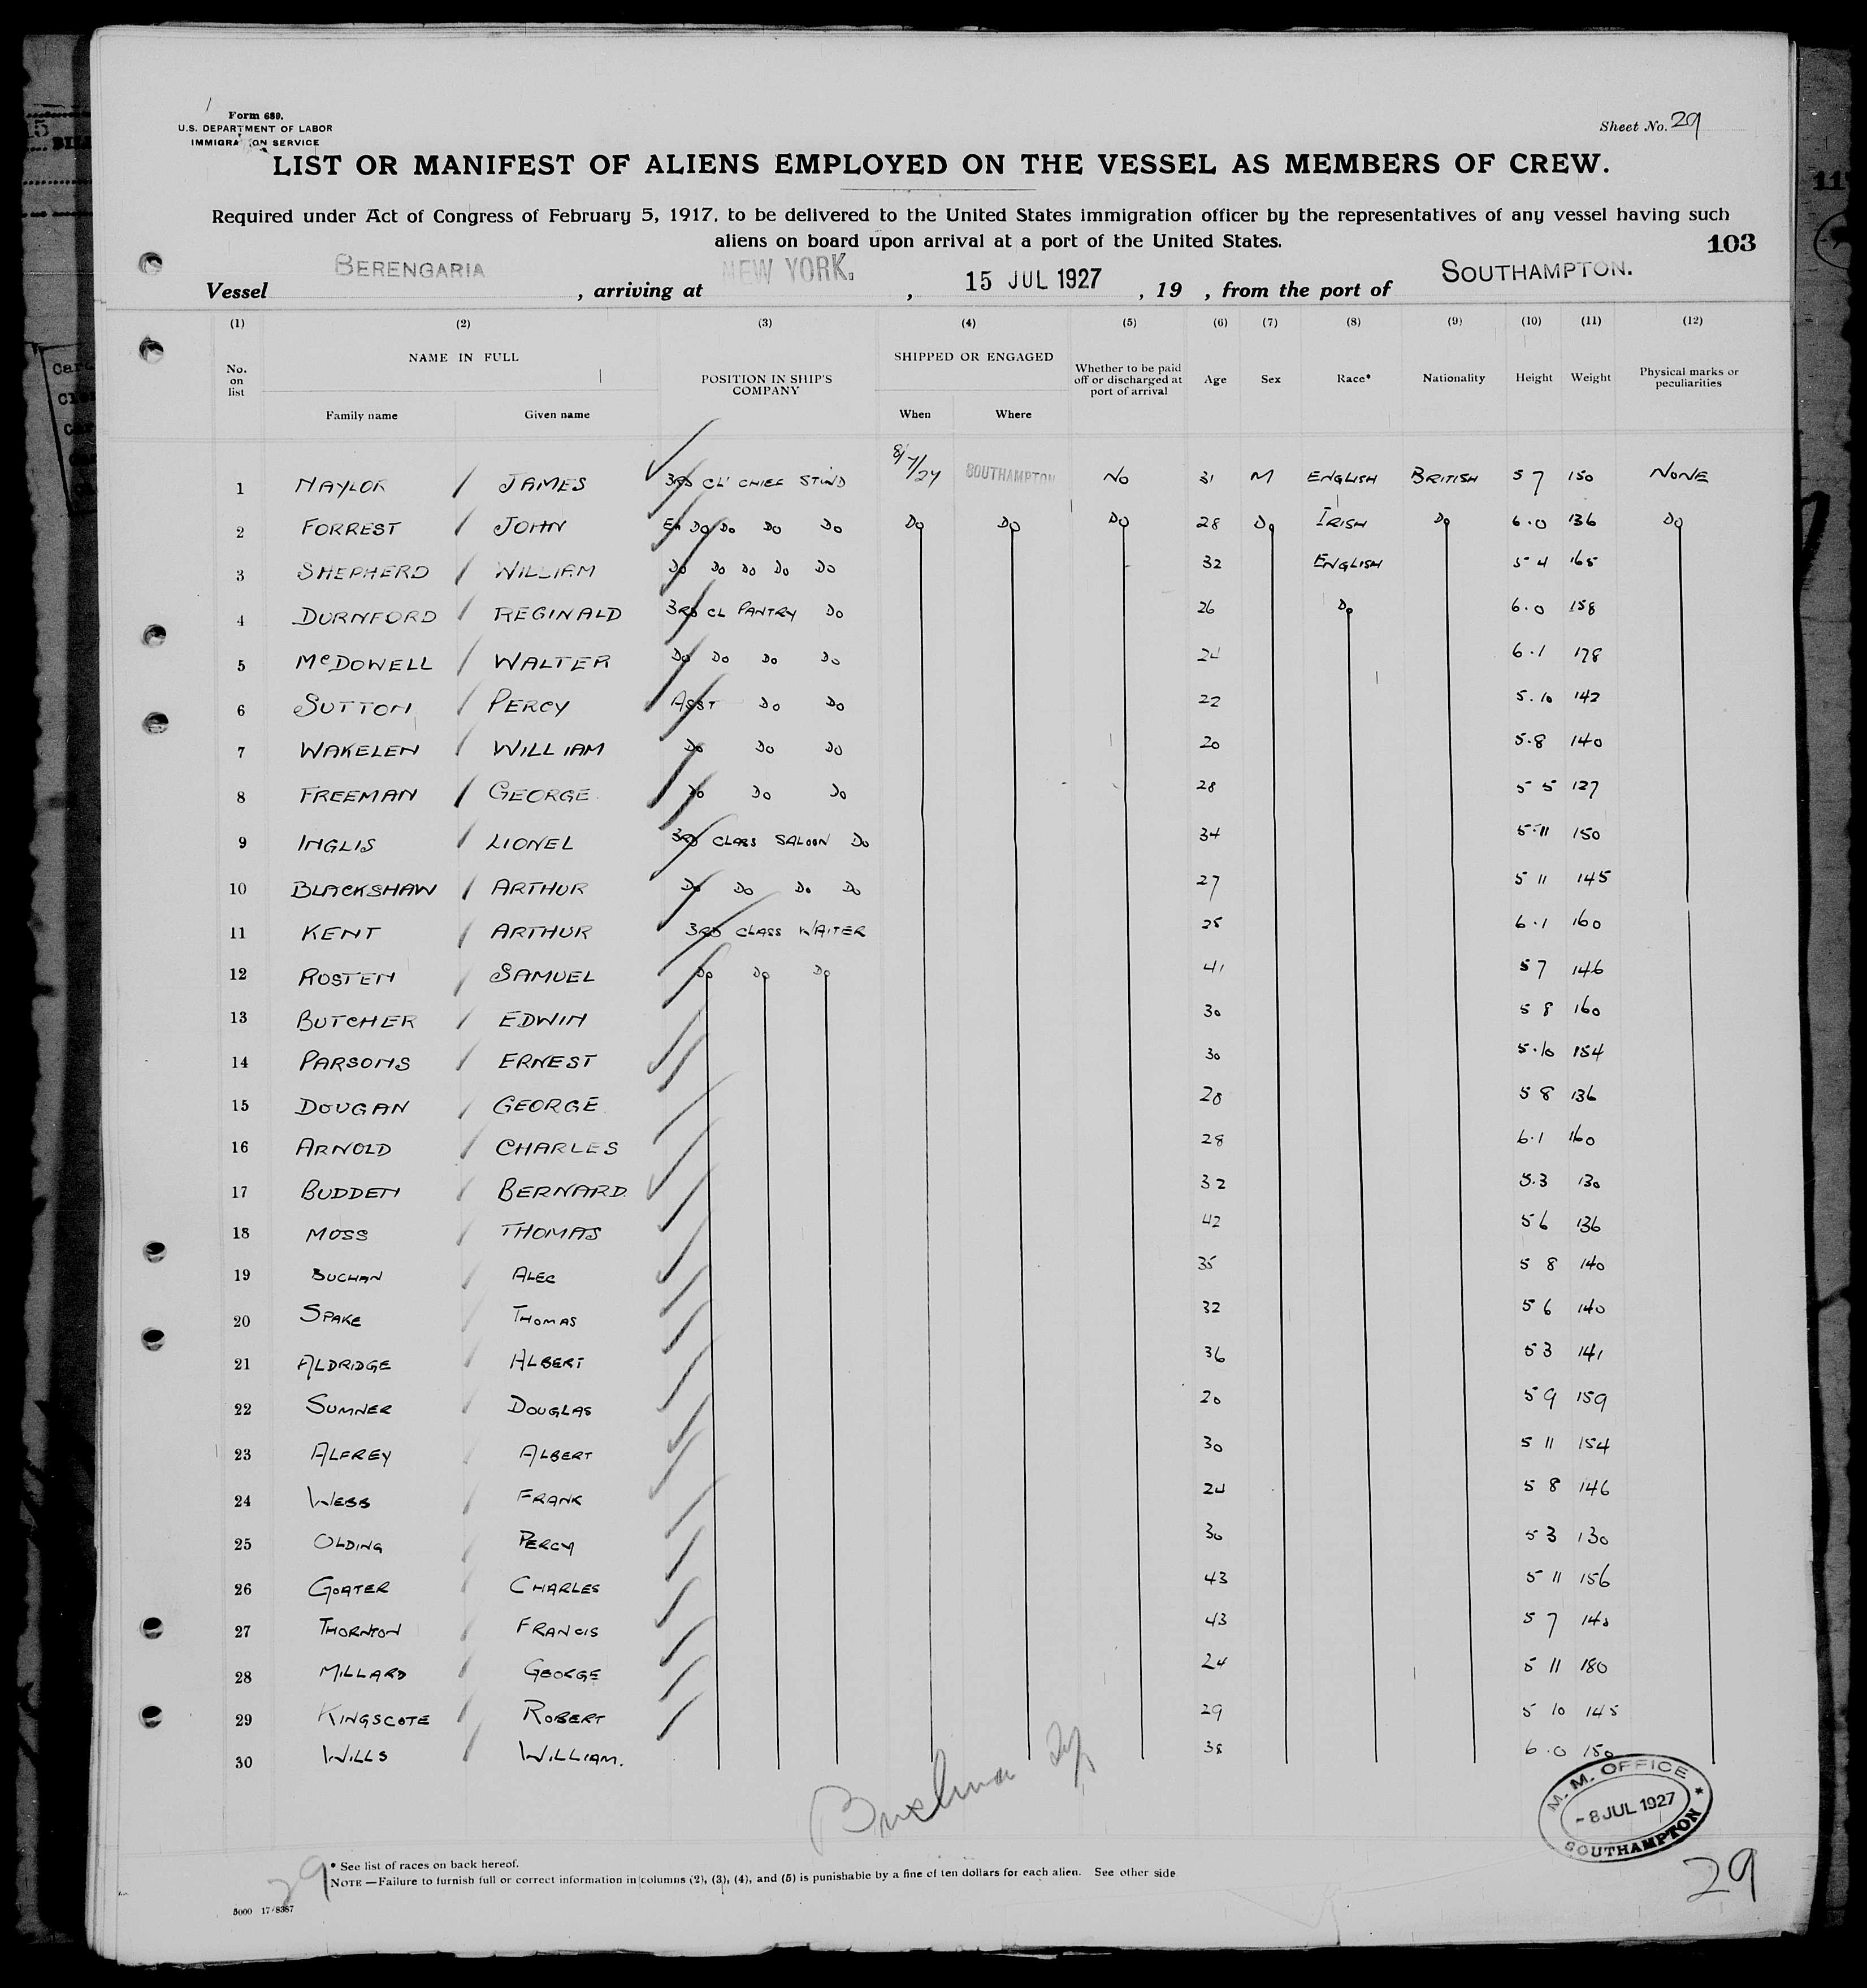 Form 680.
U.S. DEPARTMENT OF LABOR
IMMIGRATION SERVICE
Sheet No. 29
LIST OR MANIFEST OF ALIENS EMPLOYED ON THE VESSEL AS MEMBERS OF CREW.
Required under Act of Congress of February 5, 1917, to be delivered to the United States immigration officer by the representatives of any vessel having such
aliens on board upon arrival at a port of the United States.
103
Vessel BERENGARIA, arriving at NEW YORK., 15 JUL 1927, 19 , from the port of SOUTHAMPTON.
(1) (2) (3) (4) (5) (6) (7) (8) (9) (10) (11) (12)
No. on list NAME IN FULL Family name Given name POSITION IN SHIP'S COMPANY SHIPPED OR ENGAGED When Where Whether to be paid off or discharged at port of arrival Age Sex Race* Nationality Height Weight Physical marks or peculiarities
1 NAYLOR / JAMES 3RD CL' CHIEF STWD 8/7/27 SOUTHAMPTON NO 31 M ENGLISH BRITISH 5 7 150 NONE
2 FORREST / JOHN Do Do Do Do Do Do Do 28 Do IRISH Do 6.0 136 Do
3 SHEPHERD / WILLIAM Do Do Do Do Do 32 ENGLISH 5 4 165
4 DURNFORD / REGINALD 3RD CL PANTRY Do 26 Do 6.0 158
5 McDOWELL / WALTER Do Do Do Do 24 6.1 178
6 SUTTON / PERCY ASST Do Do 22 5.10 142
7 WAKELEN / WILLIAM Do Do Do 20 5.8 140
8 FREEMAN / GEORGE Do Do Do 28 5 5 127
9 INGLIS / LIONEL 3RD CLASS SALOON Do 34 5.11 150
10 BLACKSHAW / ARTHUR Do Do Do Do 27 5 11 145
11 KENT / ARTHUR 3RD CLASS WAITER 25 6.1 160
12 ROSTEN / SAMUEL Do Do Do 41 5 7 146
13 BUTCHER / EDWIN 30 5 8 160
14 PARSONS / ERNEST 30 5.10 154
15 DOUGAN / GEORGE 28 5 8 136
16 ARNOLD / CHARLES 28 6.1 160
17 BUDDEN / BERNARD 32 5.3 130
18 MOSS / THOMAS 42 5 6 136
19 BUCHAN / ALEC 35 5 8 140
20 SPAKE / THOMAS 32 5 6 140
21 ALDRIDGE / ALBERT 36 5 3 141
22 SUMNER / DOUGLAS 20 5 9 159
23 ALFREY / ALBERT 30 5 11 154
24 WEBB / FRANK 24 5 8 146
25 OLDING / PERCY 30 5 3 130
26 GOATER / CHARLES 43 5 11 156
27 THORNTON / FRANCIS 43 5 7 140
28 MILLARD / GEORGE 24 5 11 180
29 KINGSCOTE / ROBERT 29 5 10 145
30 WILLS / WILLIAM. 38 6.0 150
M. M. OFFICE
- 8 JUL 1927
SOUTHAMPTON
* See list of races on back hereof.
NOTE —Failure to furnish full or correct information in columns (2), (3), (4), and (5) is punishable by a fine of ten dollars for each alien. See other side
29
29
5000 17/8387